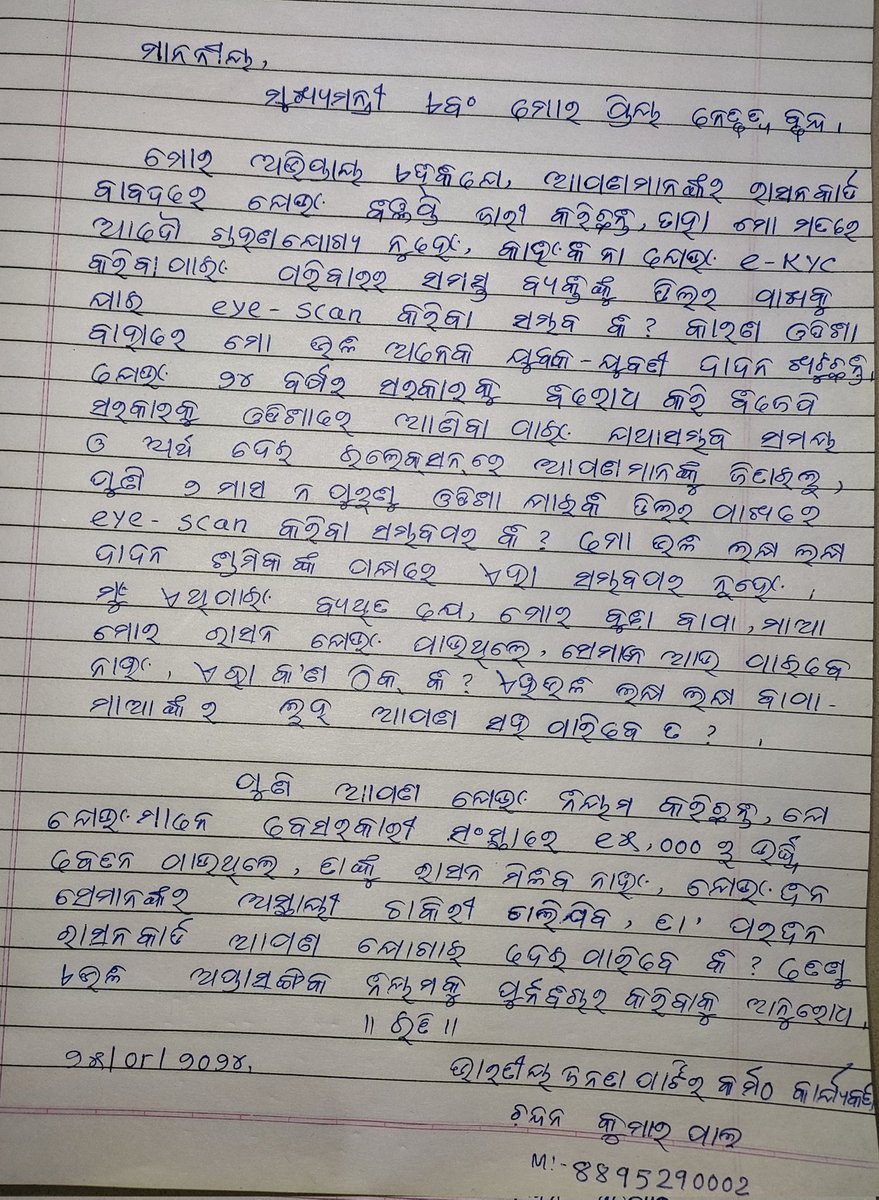 ମାନନୀୟ,
ମୁଖ୍ୟମନ୍ତ୍ରୀ ଏବଂ ମୋର ପ୍ରିୟ ନେତୃତ୍ୱ ବୃନ୍ଦ।
ମୋର ଅଭିପ୍ରାୟ ଏହିକିଯେ, ଆପଣମାନଙ୍କର ରାସନକାର୍ଡ
ବାବଦରେ ଯେଉଁ ବିଜ୍ଞପ୍ତି ଜାରୀ କରିଛନ୍ତି, ତାହା ମୋ ମତରେ
ଆଦୌ ଗ୍ରହଣଯୋଗ୍ୟ ନୁହେଁ, କାହିଁକି ନା ଯେଉଁ e-KYC
କରିବା ପାଇଁ ପରିବାରର ସମସ୍ତ ବ୍ୟକ୍ତିଙ୍କୁ ଡିଲର ପାଖକୁ
ଯାଇ eye-scan କରିବା ସମ୍ଭବ କି? କାରଣ ଓଡିଶା
ବାହାରେ ମୋ ଭଳି ଅନେକ ଯୁବକ-ଯୁବତୀ ଦାଦନ ଖଟୁଛନ୍ତି,
ଯେଉଁ ୨୪ ବର୍ଷର ସରକାରକୁ ବିରୋଧ କରି ବିଜେପି
ସରକାରକୁ ଓଡିଶାରେ ଆଣିବା ପାଇଁ ଯଥାସମ୍ଭବ ସମୟ
ଓ ଅର୍ଥ ଦେଇ ଇଲେକସନ୍‌ରେ ଆପଣମାନଙ୍କୁ ଜିତାଇଲୁ,
ପୁଣି ୨ ମାସ ନ ପୁରୁଣୁ ଓଡିଶା ଯାଇକି ଡିଲର ପାଖରେ
eye-scan କରିବା ସମ୍ଭବପର କି? ମୋ ଭଳି ଲକ୍ଷ ଲକ୍ଷ
ଦାଦନ ଶ୍ରମିକଙ୍କ ପକ୍ଷରେ ଏହା ସମ୍ଭବପର ନୁହେଁ।
ମୁଁ ଏଥିପାଇଁ ବ୍ୟଥିତ ଯେ, ମୋର ବୁଢା ବାପା, ମାଆ
ମୋର ରାସନ ଯେଉଁ ପାଉଥିଲେ, ସେମାନେ ଆଉ ପାଇବେ
ନାହିଁ, ଏହା କ'ଣ ଠିକ୍ କି? ଏହିଭଳି ଲକ୍ଷ ଲକ୍ଷ ବାପା-
ମାଆଙ୍କ ର ଲୁହ ଆପଣ ସହି ପାରିବେ ତ?।
ପୁଣି ଆପଣ ଯେଉଁ ନିୟମ କରିଛନ୍ତି, ଯେ
ଯେଉଁମାନେ ବେସରକାରୀ ସଂସ୍ଥାରେ ୧୫,000 ରୁ ଉର୍ଦ୍ଧ୍ୱ
ବେତନ ପାଉଥିଲେ, ତାଙ୍କୁ ରାସନ ମିଳିବ ନାହିଁ, ଯେଉଁ ଦିନ
ସେମାନଙ୍କର ଅସ୍ଥାୟୀ ଚାକିରୀ ଚାଲିଯିବ, ତା' ପରଦିନ
ରାସନକାର୍ଡ ଆପଣ ଯୋଗାଇ ଦେଇ ପାରିବେ କି? ତେଣୁ
ଏଭଳି ଅପ୍ରାସଙ୍ଗିକ ନିୟମକୁ ପୁର୍ନବିଚାର କରିବାକୁ ଅନୁରୋଧ।
॥ ଇତି ॥
୨୫/0୮/୨0୨୪.
ଭାରତୀୟ ଜନତା ପାର୍ଟିର କର୍ମଠ କାର୍ଯ୍ୟକର୍ତ୍ତା
ଚନ୍ଦନ କୁମାର ପାଲ
M:- 8895290002